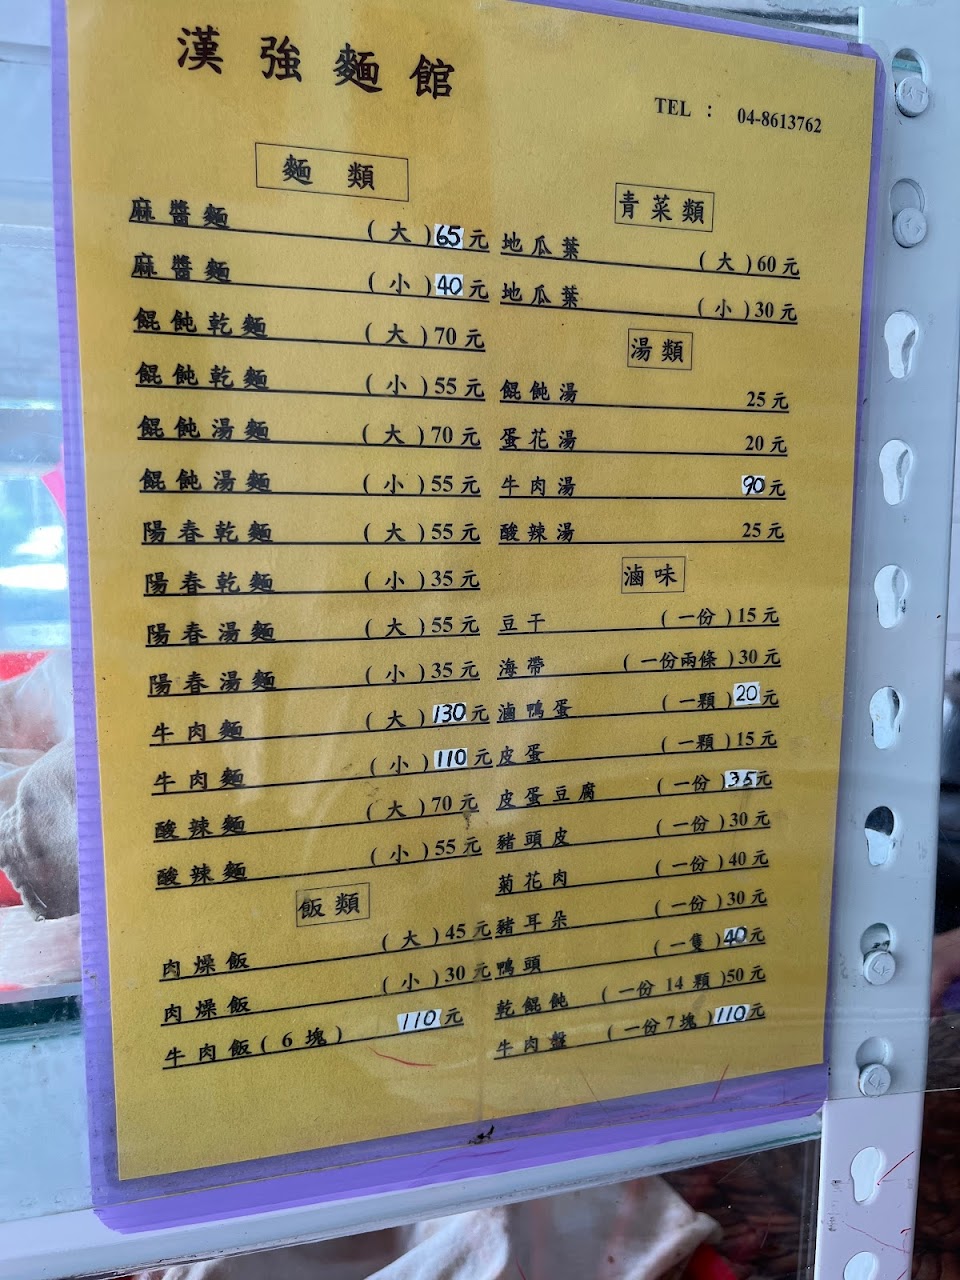 漢強麵館
TEL : 04-8613762
麵類
麻醬麵 (大)65元
麻醬麵 (小)40元
餛飩乾麵 (大)70元
餛飩乾麵 (小)55元
餛飩湯麵 (大)70元
餛飩湯麵 (小)55元
陽春乾麵 (大)55元
陽春乾麵 (小)35元
陽春湯麵 (大)55元
陽春湯麵 (小)35元
牛肉麵 (大)130元
牛肉麵 (小)110元
酸辣麵 (大)70元
酸辣麵 (小)55元
飯類
肉燥飯 (大)45元
肉燥飯 (小)30元
牛肉飯(6塊) 110元
青菜類
地瓜葉 (大)60元
地瓜葉 (小)30元
湯類
餛飩湯 25元
蛋花湯 20元
牛肉湯 90元
酸辣湯 25元
滷味
豆干 (一份)15元
海帶 (一份兩條)30元
滷鴨蛋 (一顆)20元
皮蛋 (一顆)15元
皮蛋豆腐 (一份)35元
豬頭皮 (一份)30元
菊花肉 (一份)40元
豬耳朵 (一份)30元
鴨頭 (一隻)40元
乾餛飩 (一份14顆)50元
牛肉盤 (一份7塊)110元